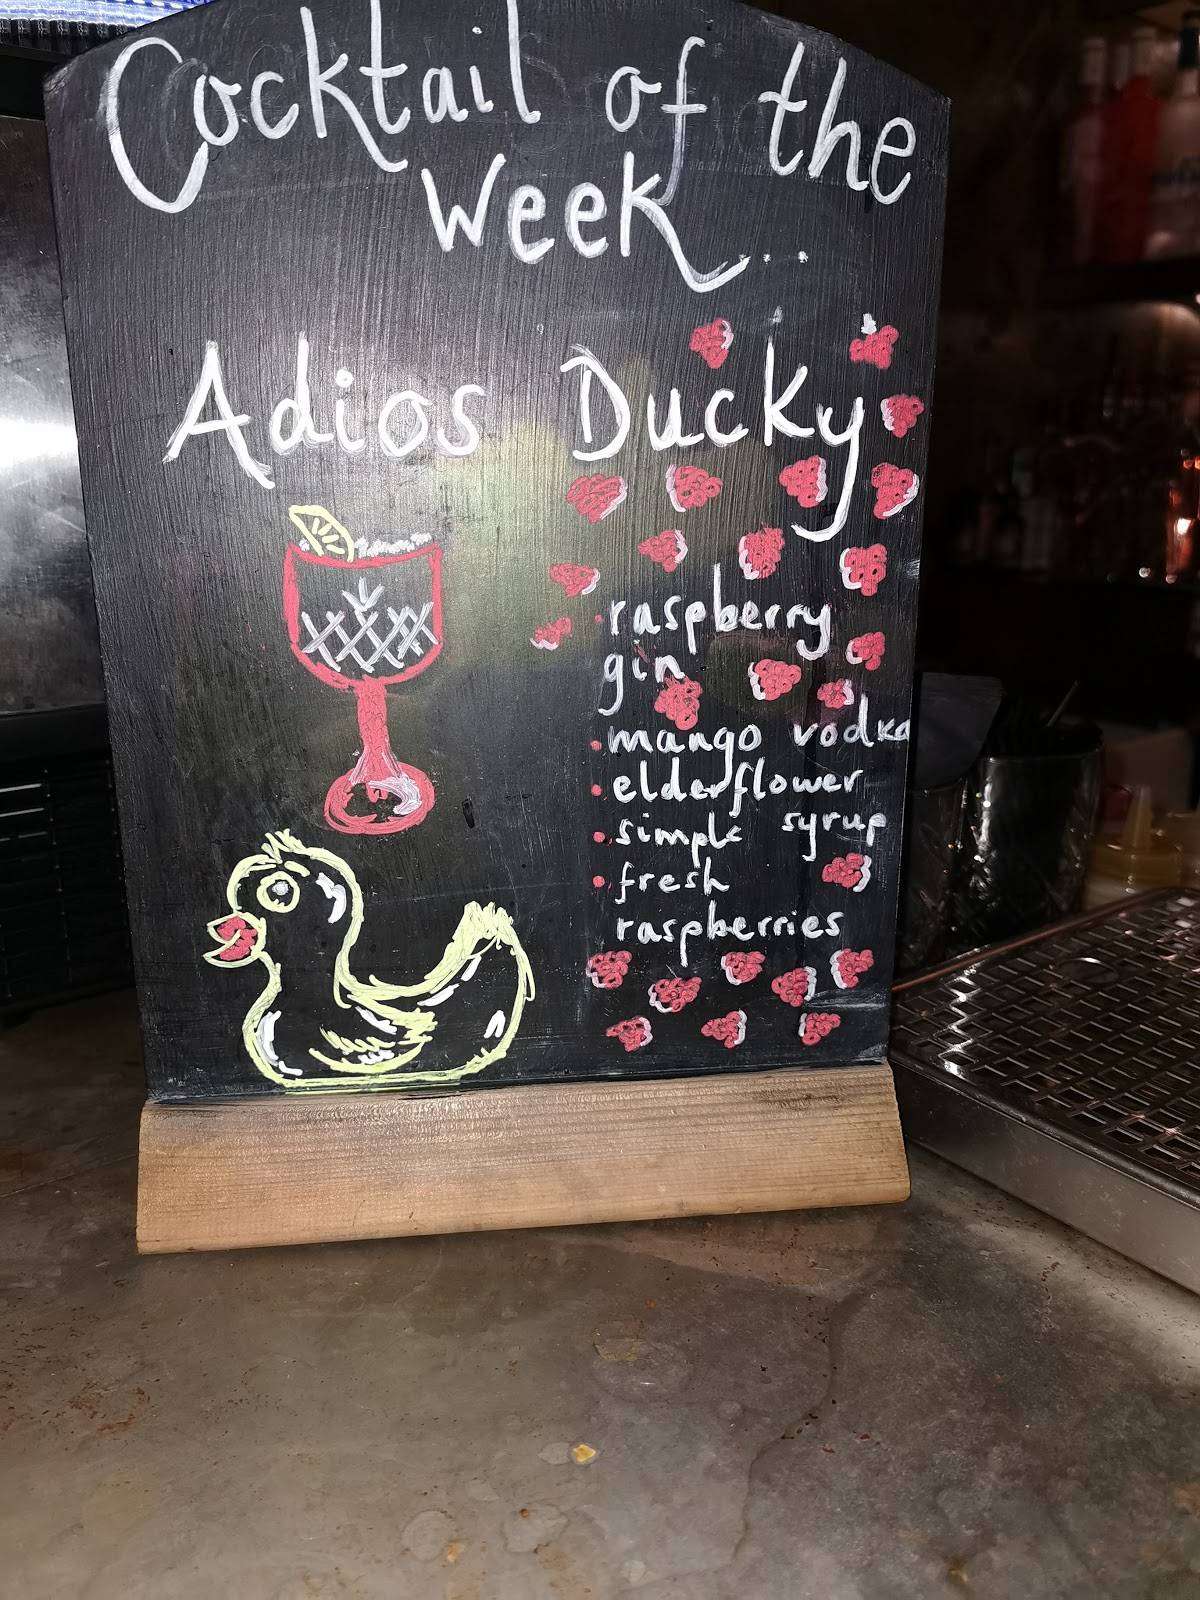 Cocktail of the
Week...
Adios Ducky
• raspberry
gin
• mango vodka
• elderflower
• simple syrup
• fresh
raspberries